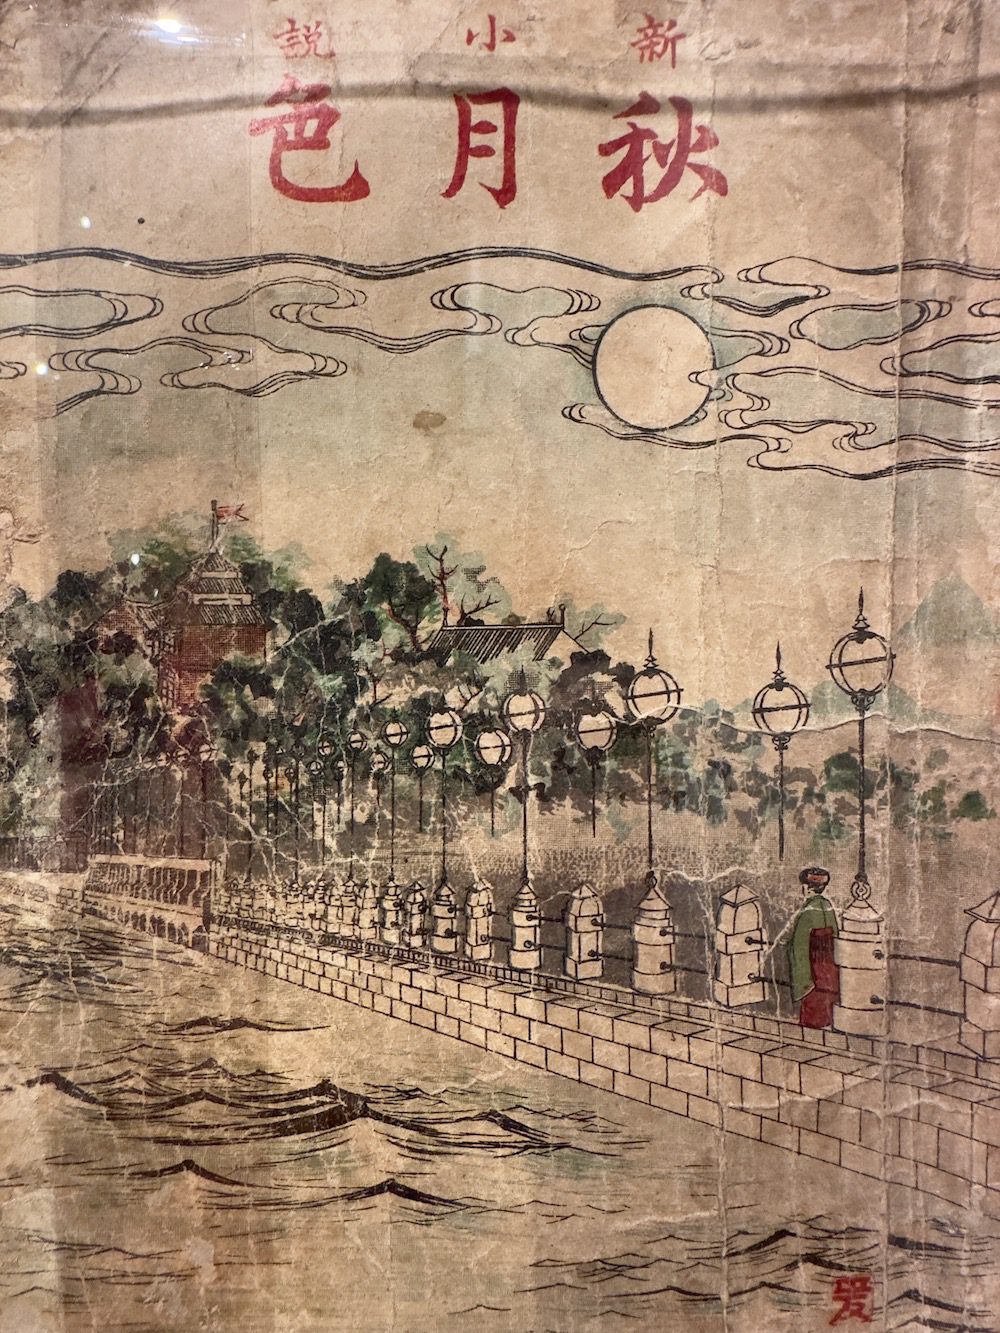 新小説
秋月色